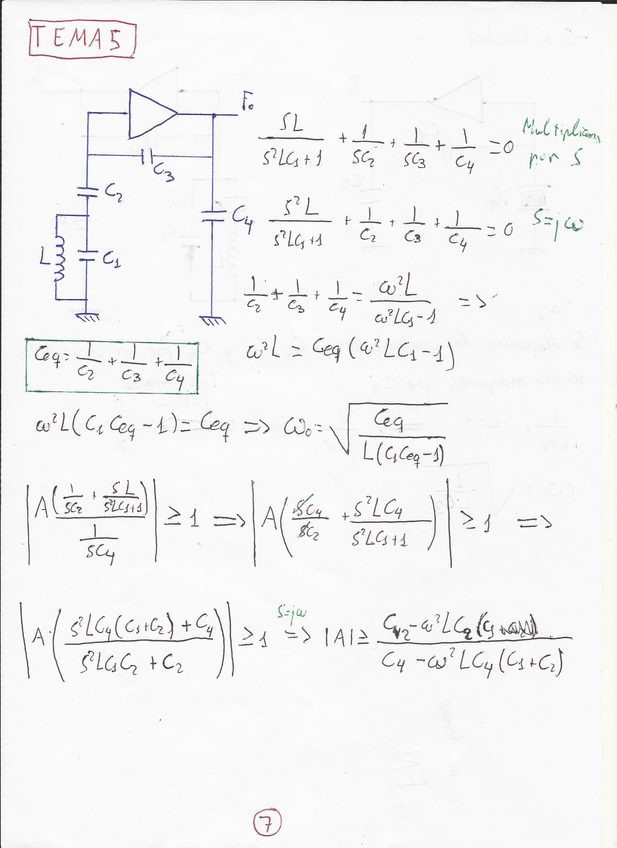 TEMA 5
F₀
C3
C2
C4
L
C1
SL/(S²LC1+1) + 1/SC2 + 1/SC3 + 1/C4 = 0 Multiplicamos
por S
S²L/(S²LC1+1) + 1/C2 + 1/C3 + 1/C4 = 0 S=jω
1/C2 + 1/C3 + 1/C4 = ω²L/(ω²LC1-1) =>
Ceq = 1/C2 + 1/C3 + 1/C4
ω²L = Ceq(ω²LC1-1)
ω²L(C1Ceq-1) = Ceq => ω₀ = √(Ceq/(L(C1Ceq-1)))
|A(1/SC2 + SL/(S²LC1+1))/(1/SC4)| ≥ 1 => |A(SC4/SC2 + S²LC4/(S²LC1+1))| ≥ 1 =>
|A·((S²LC4(C1+C2)+C4)/(S²LC1C2+C2))| ≥ 1 S=jω => |A| ≥ (C2-ω²LC2(C1))/(C4-ω²LC4(C1+C2))
7